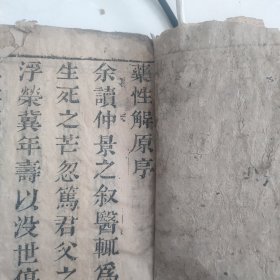 藥性解原序
余讀仲景之叙醫輒爲
生死之芒忽篤君父之
浮榮冀年壽以没世傎